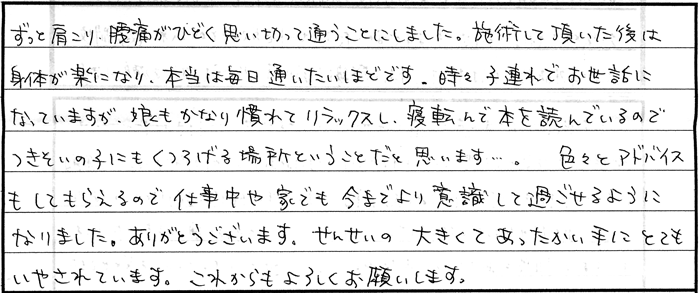 ずっと肩こり、腰痛がひどく思い切って通うことにしました。施術して頂いた後は
身体が楽になり、本当は毎日通いたいほどです。時々子連れでお世話に
なっていますが、娘もかなり慣れてリラックスし、寝転んで本を読んでいるので
つきそいの子にもくつろげる場所ということだと思います…。 色々とアドバイス
もしてもらえるので仕事中や家でも今までより意識して過ごせるように
なりました。ありがとうございます。せんせいの大きくてあったかい手にとても
いやされています。これからもよろしくお願いします。